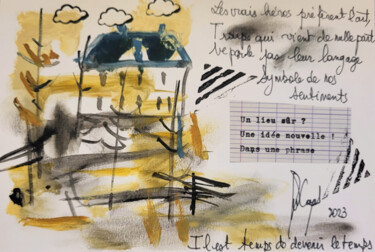 Les vrais héros préfèrent l'art,
Temps qui vient de nulle part
Ne parle pas leur langage
Symbole de nos
sentiments
Un lieu sûr ?
Une idée nouvelle !
Dans une phrase
2023
Il est temps de devenir le temps